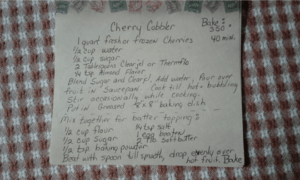 Cherry Cobbler
Bake:
350
40 min.
1 quart fresh or frozen Cherries
1/2 cup water
1/2 cup sugar
2 Tablespoons Clearjel or Thermflo
1/4 tsp Almond Flavor
Blend Sugar and Clearjel. Add water. Pour over
fruit in Saucepan. Cook till hot + bubbling
Stir occasionally while cooking.
Put in Greased 8"x8" baking dish
Mix together for batter topping:
1/2 cup flour
1/4 tsp salt
1/2 cup sugar
1 egg beaten
1/2 tsp baking powder
soft butter
Beat with spoon till smooth, drop evenly over
hot fruit. Bake